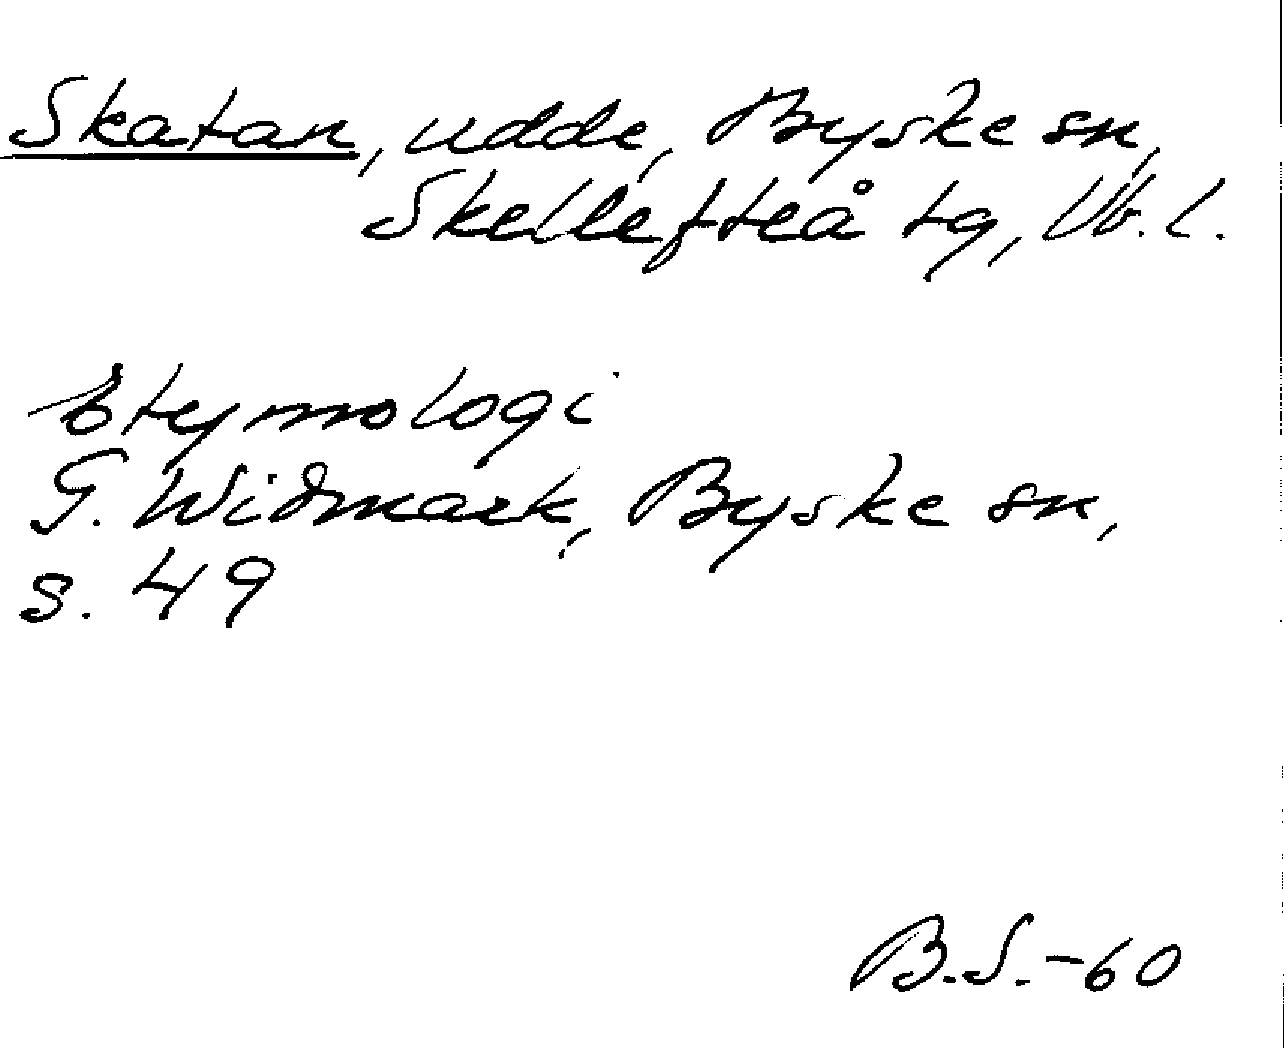 Skatan, udde, Byske sn,
Skellefteå tg, Vb. l.
Etymologi
G. Widmark, Byske sn,
s. 49
B.S.-60